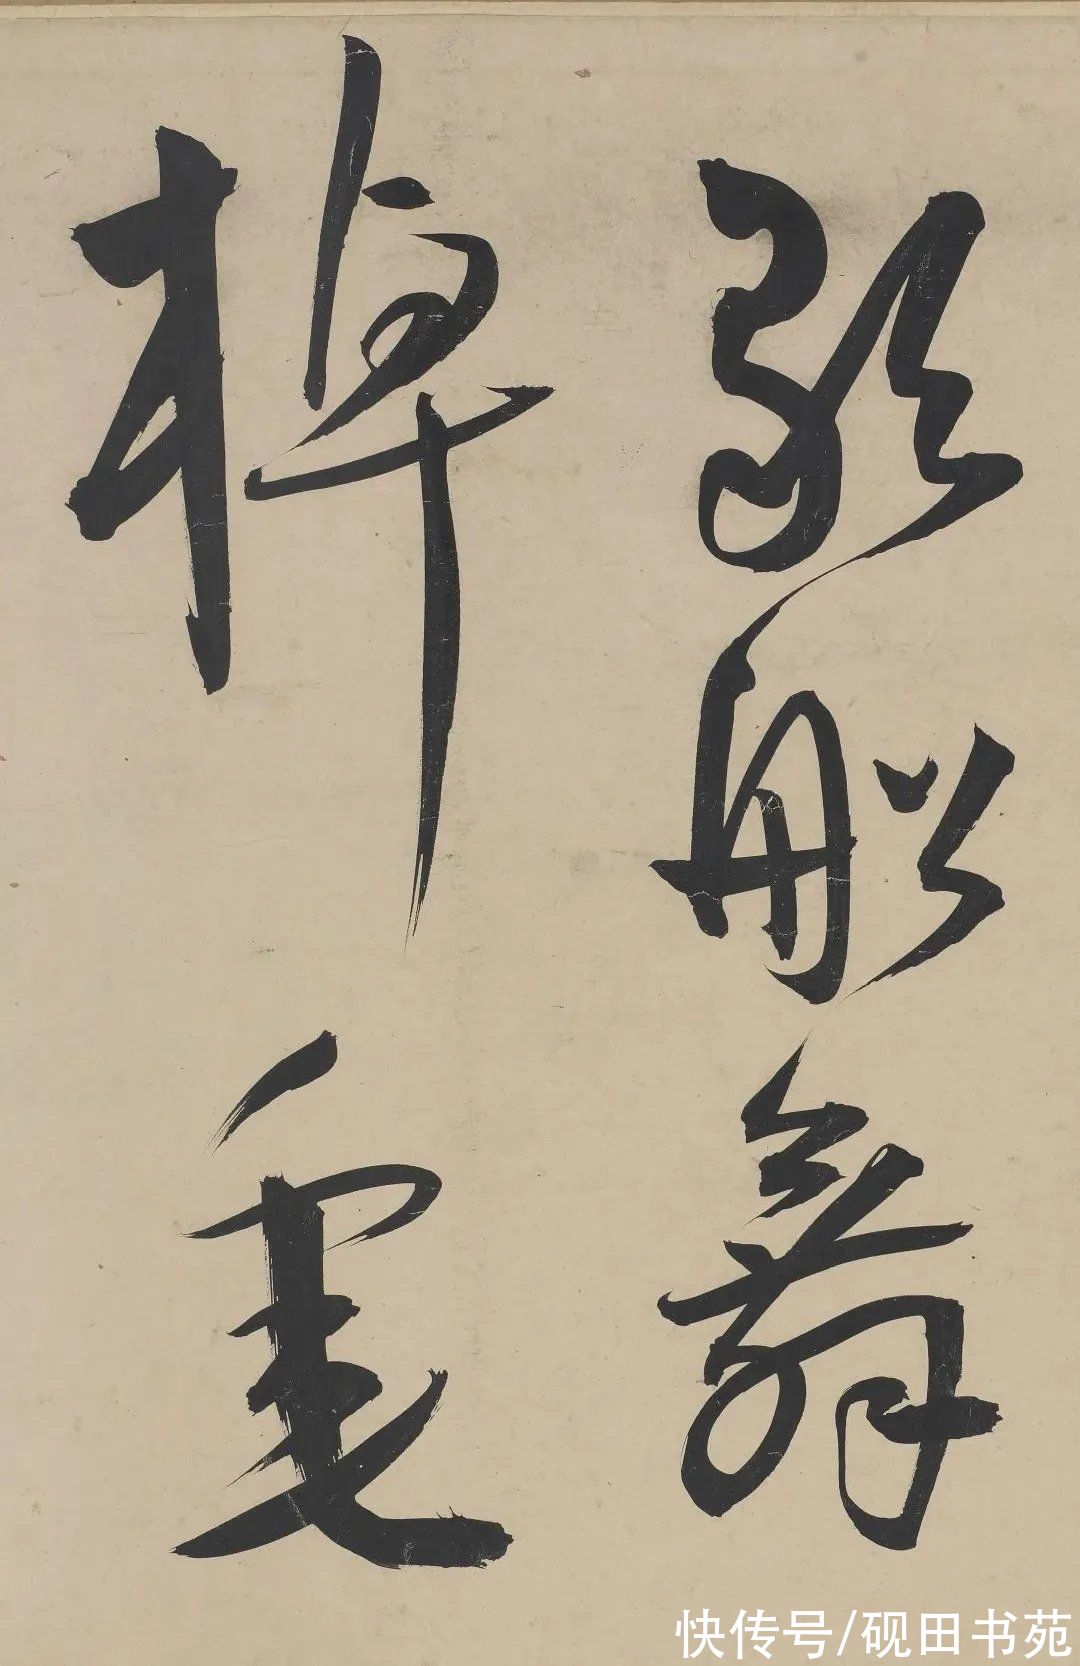 歌船舞
棹
快传号/砚田书苑